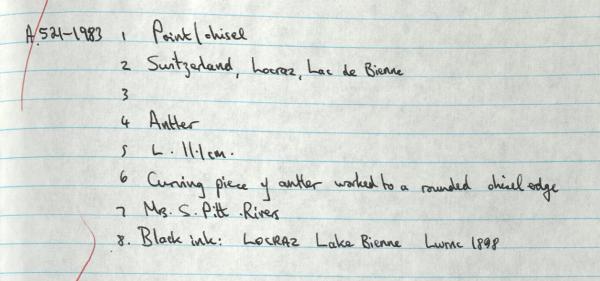 A.521-1983 1 Point/chisel
2 Switzerland, Locraz, Lac de Bienne
3
4 Antler
5 L. 11.1cm.
6 Curving piece of antler worked to a rounded chisel edge
7 Mrs. S. Pitt-Rivers
8. Black ink: LOCRAZ Lake Bienne 1898